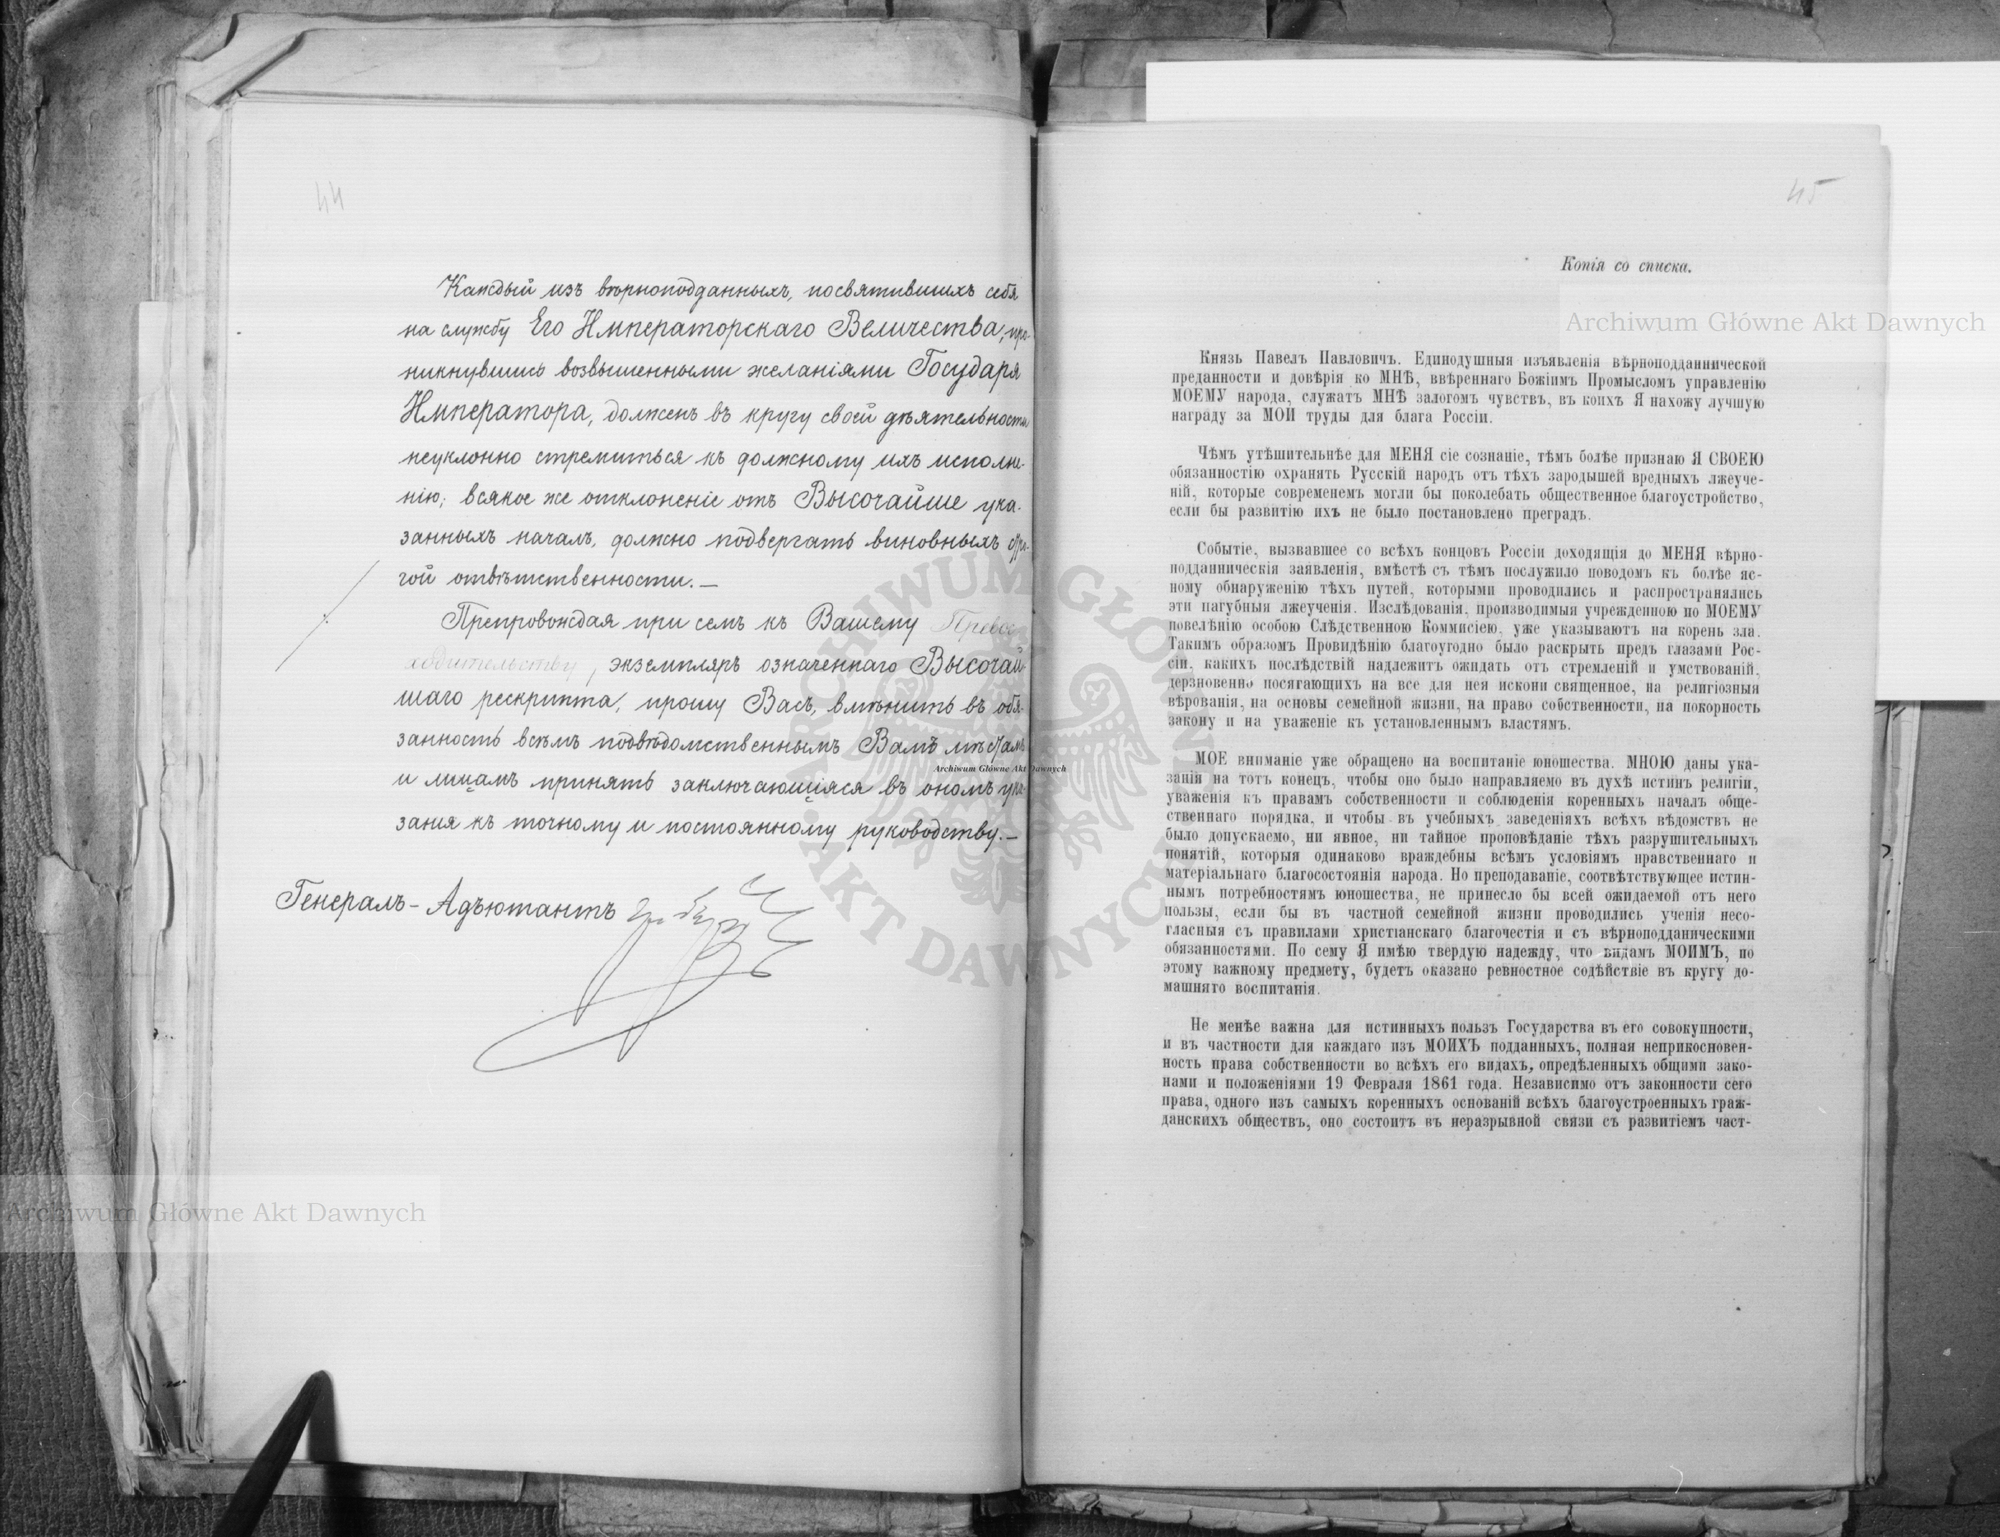 44
Каждый изъ вѣрноподданныхъ, посвятившихъ себя
на службу Его Императорскаго Величества, про-
никнувшись возвышенными желаніями Государя
Императора, долженъ въ кругу своей дѣятельности
неуклонно стремиться къ должному ихъ исполне-
нію; всякое же отклоненіе отъ Высочайше ука-
занныхъ началъ, должно подвергать виновныхъ стро-
гой отвѣтственности.—
Препровождая при семъ къ Вашему Превос-
ходительству, экземпляръ означеннаго Высочай-
шаго рескрипта, прошу Васъ, вмѣнить въ обя-
занность всѣмъ подвѣдомственнымъ Вамъ мѣстамъ
и лицамъ принять заключающіяся въ ономъ ука-
зания къ точному и постоянному руководству.—
Генералъ-Адъютантъ
45
Копія со списка.
Князь Павелъ Павловичъ. Единодушныя изъявленія вѣрноподданнической
преданности и довѣрія ко МНѢ, ввѣреннаго Божіимъ Промысломъ управленію
МОЕМУ народа, служатъ МНѢ залогомъ чувствъ, въ коихъ Я нахожу лучшую
награду за МОИ труды для блага Россіи.
Чѣмъ утѣшительнѣе для МЕНЯ сіе сознаніе, тѣмъ болѣе признаю Я СВОЕЮ
обязанностію охранять Русскій народъ отъ тѣхъ зародышей вредныхъ лжеуче-
ній, которые современемъ могли бы поколебать общественное благоустройство,
если бы развитію ихъ не было постановлено преградъ.
Событіе, вызвавшее со всѣхъ концовъ Россіи доходящія до МЕНЯ вѣрно-
подданническія заявленія, вмѣстѣ съ тѣмъ послужило поводомъ къ болѣе яс-
ному обнаруженію тѣхъ путей, которыми проводились и распространялись
эти пагубныя лжеученія. Изслѣдованія, производимыя учрежденною по МОЕМУ
повелѣнію особою Слѣдственною Коммисіею, уже указываютъ на корень зла.
Такимъ образомъ Провидѣнію благоугодно было раскрыть предъ глазами Рос-
сіи, какихъ послѣдствій надлежитъ ожидать отъ стремленій и умствованій,
дерзновенно посягающихъ на все для нея искони священное, на религіозныя
вѣрованія, на основы семейной жизни, на право собственности, на покорность
закону и на уваженіе къ установленнымъ властямъ.
МОЕ вниманіе уже обращено на воспитаніе юношества. МНОЮ даны ука-
занія на тотъ конецъ, чтобы оно было направляемо въ духѣ истинъ религіи,
уваженія къ правамъ собственности и соблюденія коренныхъ началъ обще-
ственнаго порядка, и чтобы въ учебныхъ заведеніяхъ всѣхъ вѣдомствъ не
было допускаемо, ни явное, ни тайное проповѣданіе тѣхъ разрушительныхъ
понятій, которыя одинаково враждебны всѣмъ условіямъ нравственнаго и
матеріальнаго благосостоянія народа. Но преподаваніе, соотвѣтствующее истин-
нымъ потребностямъ юношества, не принесло бы всей ожидаемой отъ него
пользы, если бы въ частной семейной жизни проводились ученія несо-
гласныя съ правилами христіанскаго благочестія и съ вѣрноподданническими
обязанностями. По сему Я имѣю твердую надежду, что видамъ МОИМЪ, по
этому важному предмету, будетъ оказано ревностное содѣйствіе въ кругу до-
машняго воспитанія.
Не менѣе важна для истинныхъ пользъ Государства въ его совокупности,
и въ частности для каждаго изъ МОИХЪ подданныхъ, полная неприкосновен-
ность права собственности во всѣхъ его видахъ, опредѣленныхъ общими зако-
нами и положеніями 19 Февраля 1861 года. Независимо отъ законности сего
права, одного изъ самыхъ коренныхъ основаній всѣхъ благоустроенныхъ граж-
данскихъ обществъ, оно состоитъ въ неразрывной связи съ развитіемъ част-
Archiwum Główne Akt Dawnych
Archiwum Główne Akt Dawnych
Archiwum Główne Akt Dawnych
ARCHIWUM GŁÓWNE AKT DAWNYCH